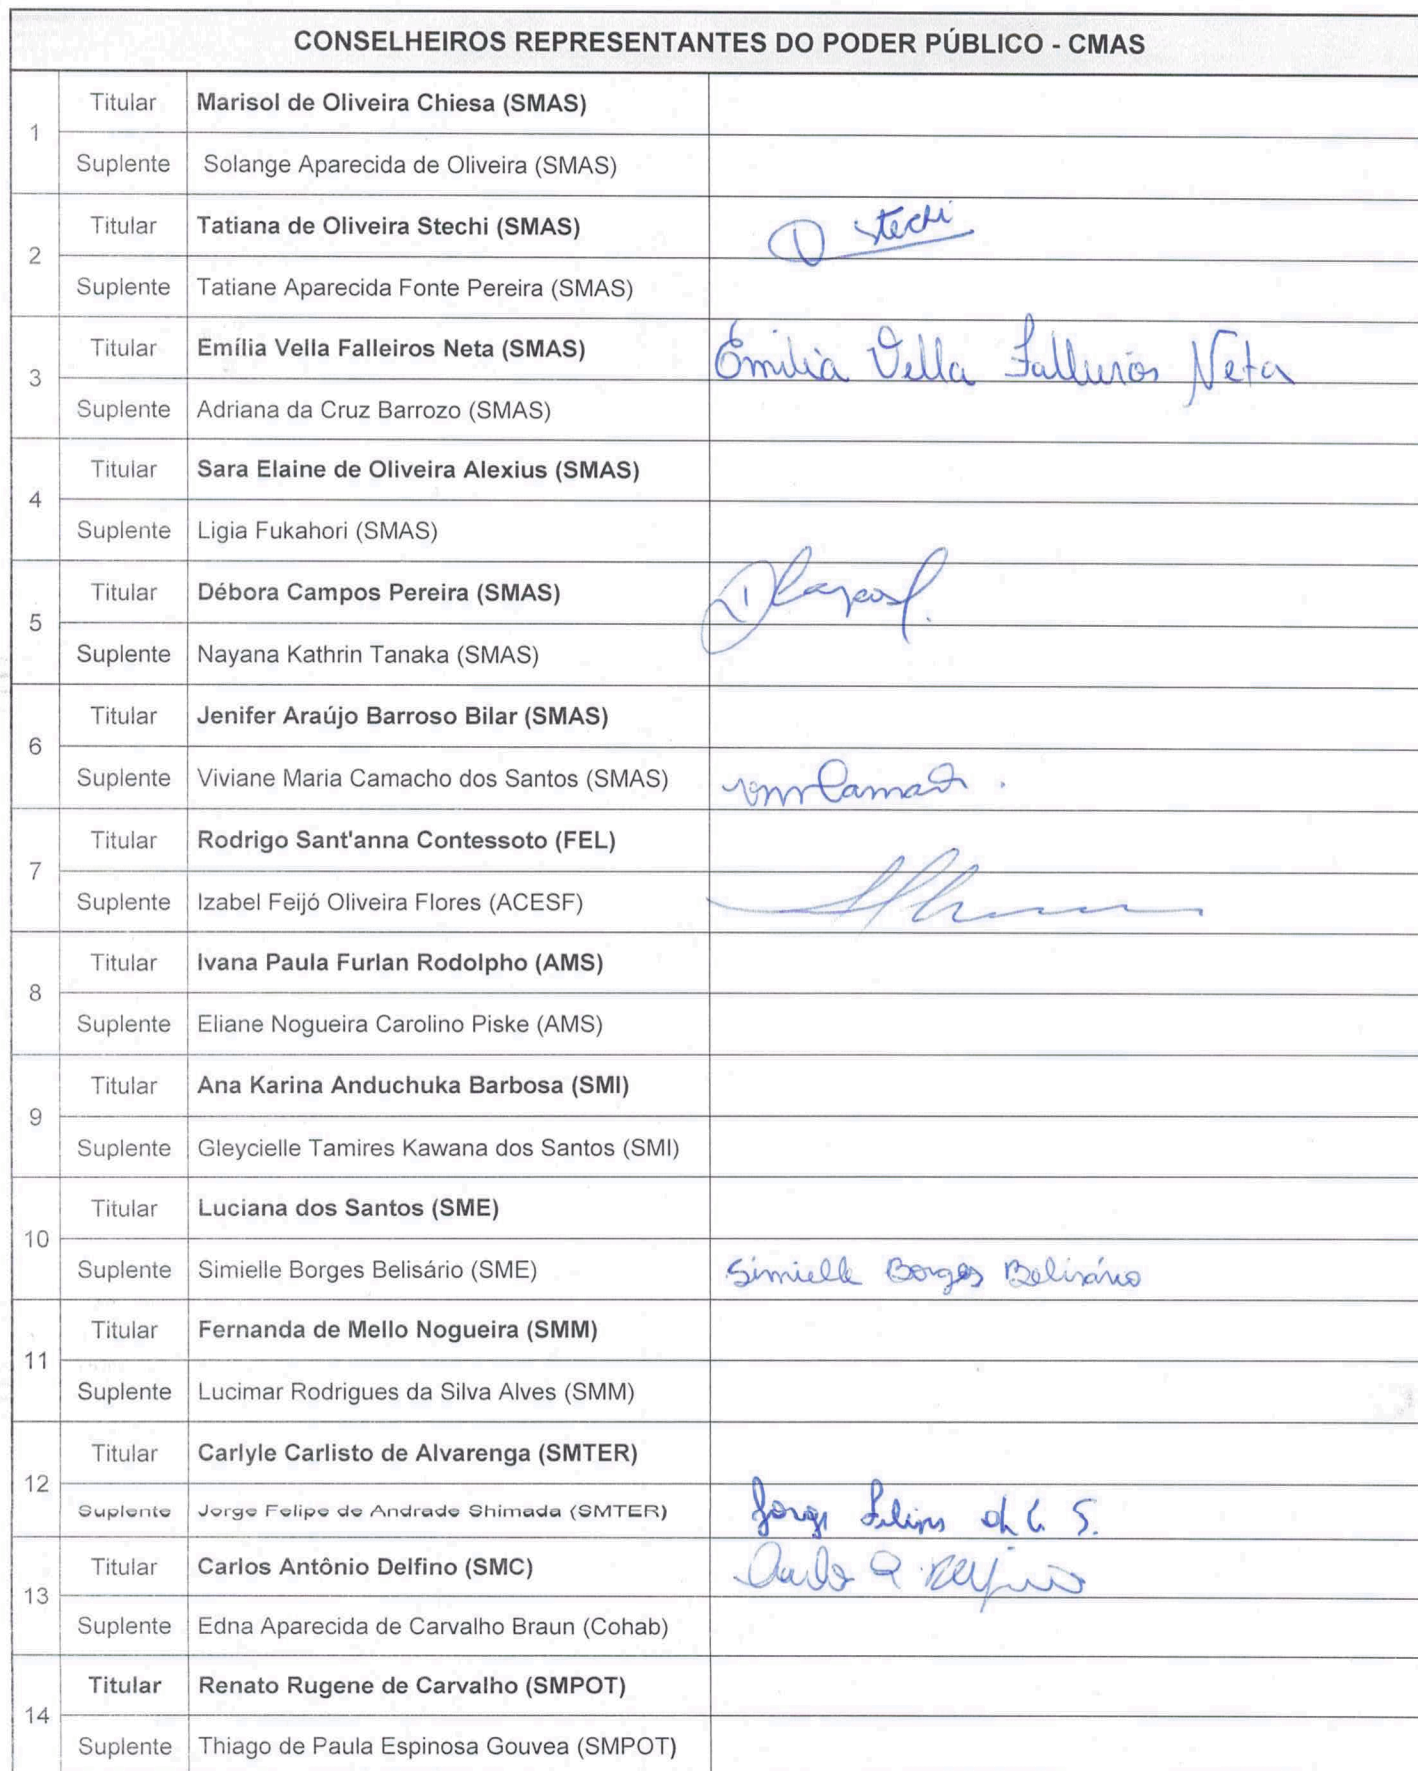 CONSELHEIROS REPRESENTANTES DO PODER PÚBLICO - CMAS
1
Titular Marisol de Oliveira Chiesa (SMAS)
Suplente Solange Aparecida de Oliveira (SMAS)
2
Titular Tatiana de Oliveira Stechi (SMAS) Stechi
Suplente Tatiane Aparecida Fonte Pereira (SMAS)
3
Titular Emília Vella Falleiros Neta (SMAS) Emilia Vella Falleiros Neta
Suplente Adriana da Cruz Barrozo (SMAS)
4
Titular Sara Elaine de Oliveira Alexius (SMAS)
Suplente Ligia Fukahori (SMAS)
5
Titular Débora Campos Pereira (SMAS)
Suplente Nayana Kathrin Tanaka (SMAS)
6
Titular Jenifer Araújo Barroso Bilar (SMAS)
Suplente Viviane Maria Camacho dos Santos (SMAS)
7
Titular Rodrigo Sant'anna Contessoto (FEL)
Suplente Izabel Feijó Oliveira Flores (ACESF)
8
Titular Ivana Paula Furlan Rodolpho (AMS)
Suplente Eliane Nogueira Carolino Piske (AMS)
9
Titular Ana Karina Anduchuka Barbosa (SMI)
Suplente Gleycielle Tamires Kawana dos Santos (SMI)
10
Titular Luciana dos Santos (SME)
Suplente Simielle Borges Belisário (SME) Simielle Borges Belisário
11
Titular Fernanda de Mello Nogueira (SMM)
Suplente Lucimar Rodrigues da Silva Alves (SMM)
12
Titular Carlyle Carlisto de Alvarenga (SMTER)
Suplente Jorge Felipe de Andrade Shimada (SMTER) Jorge Felipe
13
Titular Carlos Antônio Delfino (SMC) Carlos A. Delfino
Suplente Edna Aparecida de Carvalho Braun (Cohab)
14
Titular Renato Rugene de Carvalho (SMPOT)
Suplente Thiago de Paula Espinosa Gouvea (SMPOT)